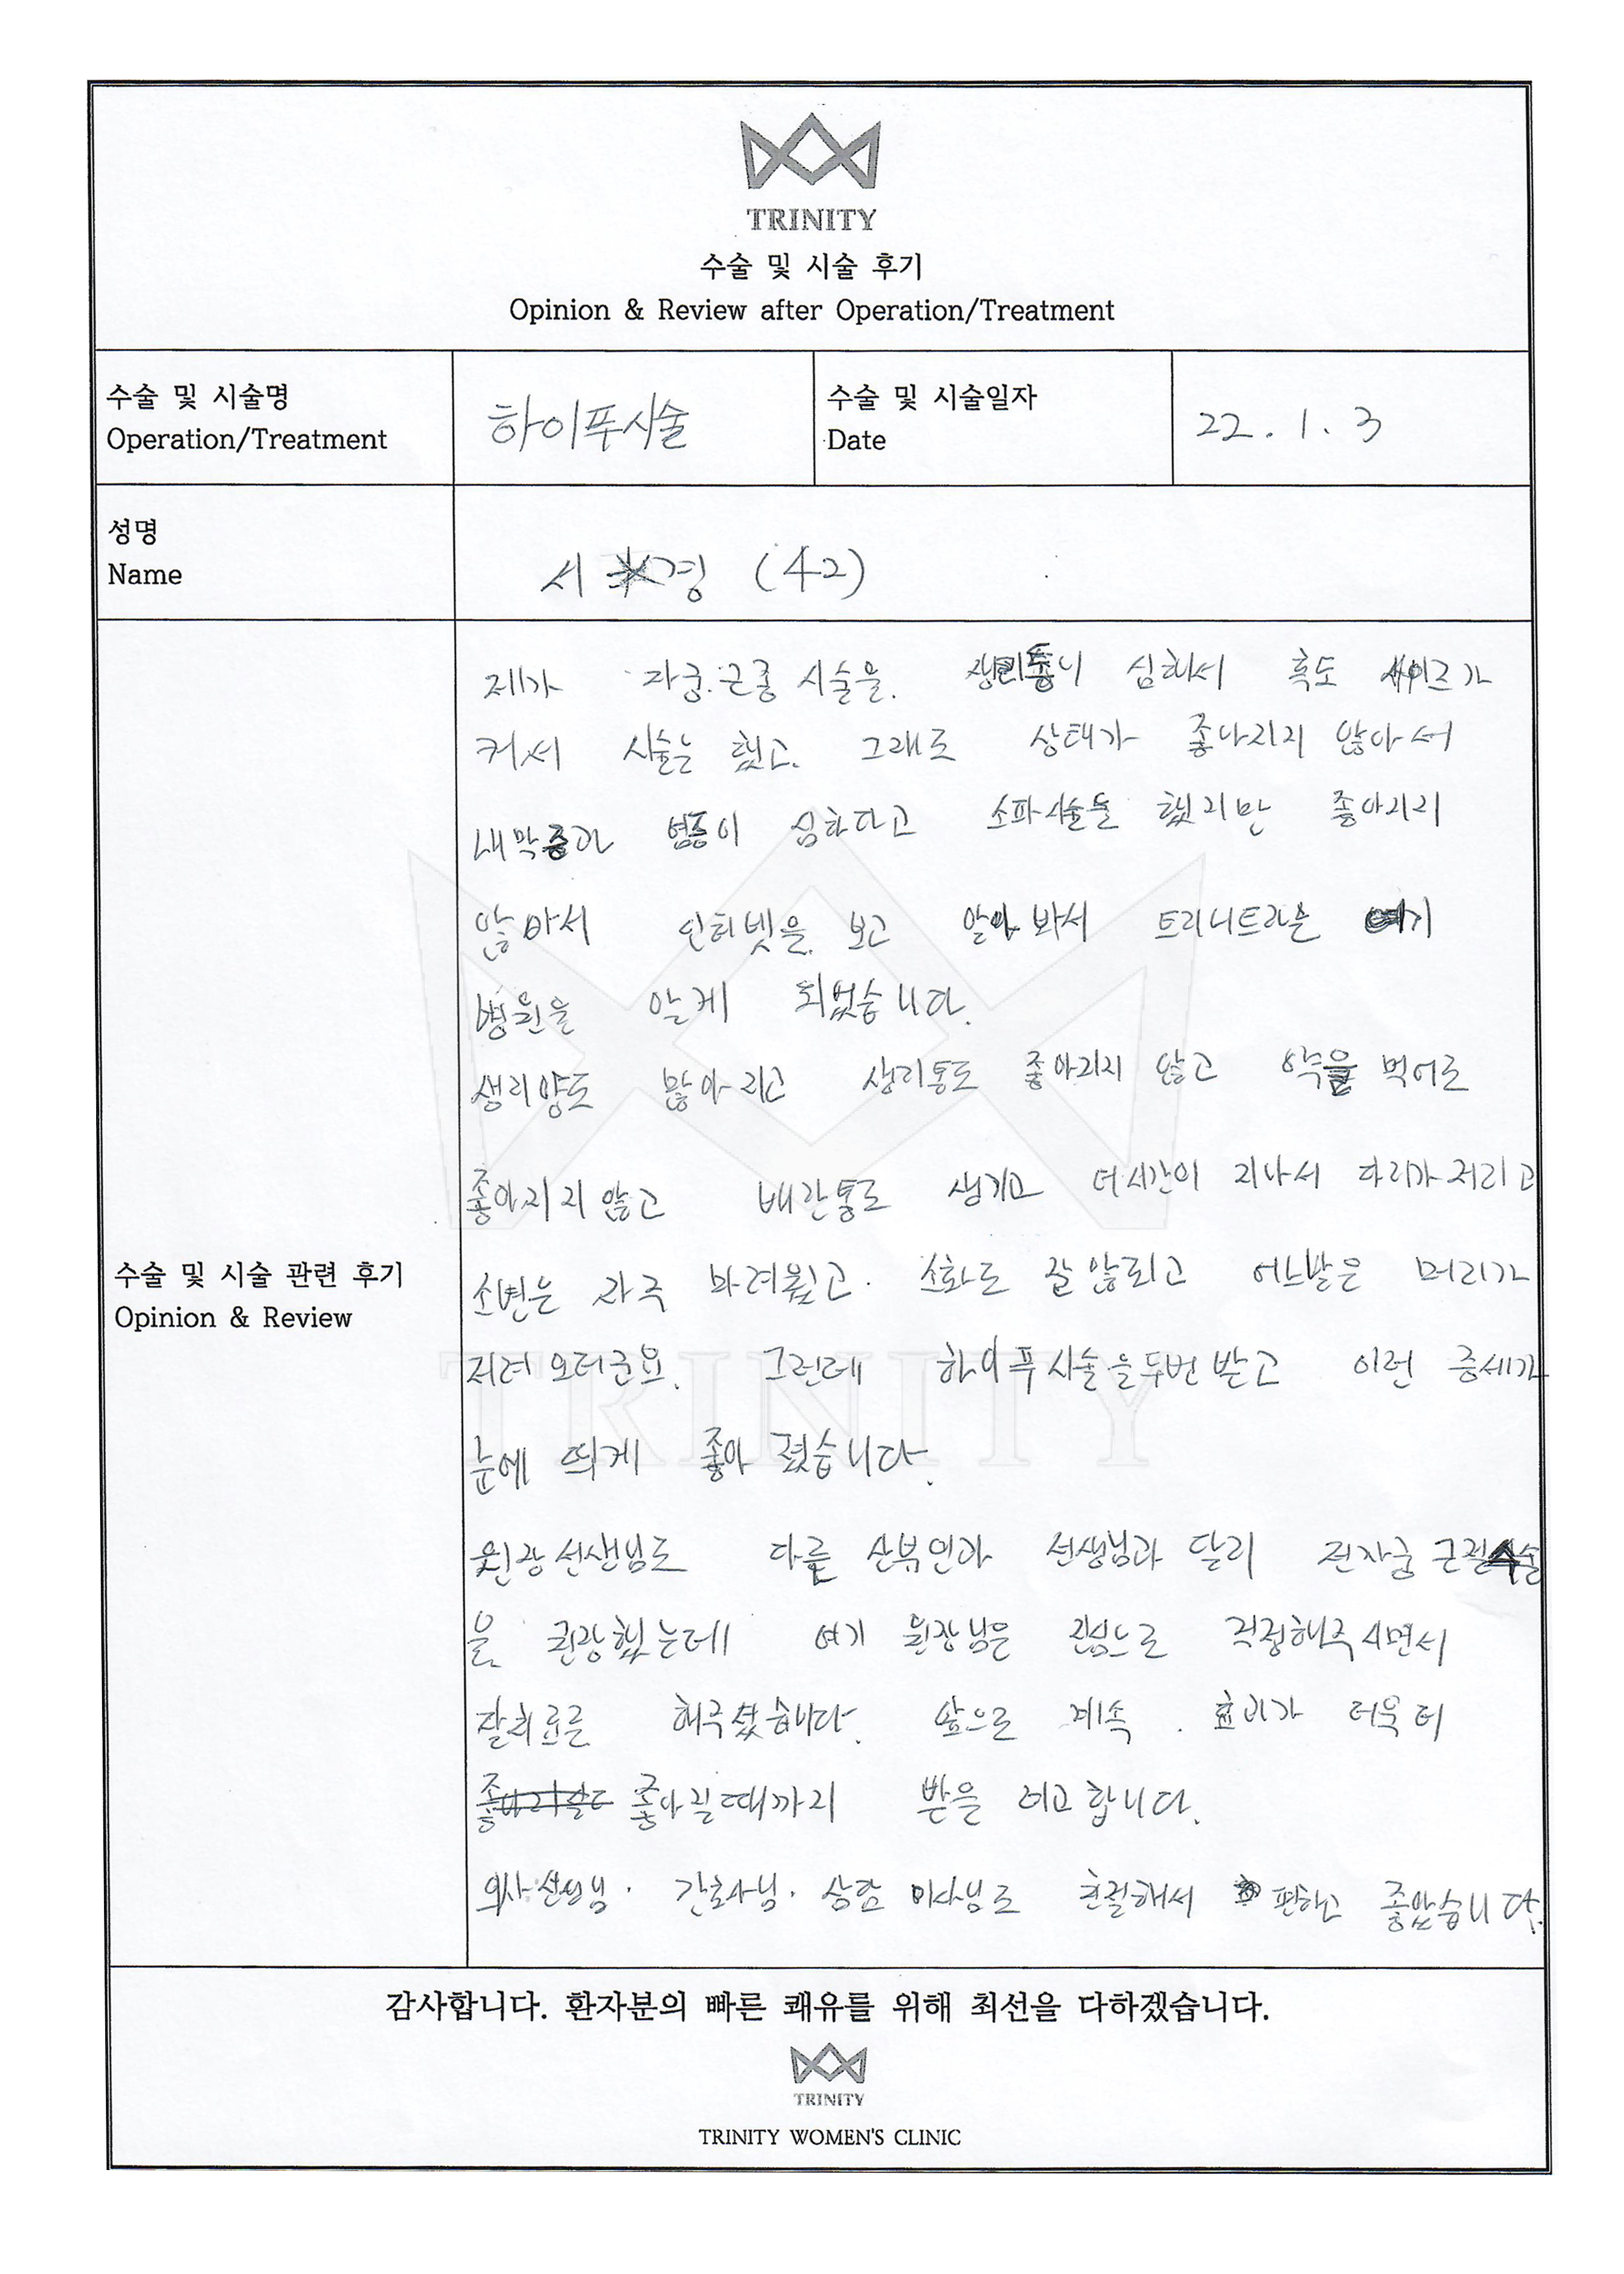 TRINITY
수술 및 시술 후기
Opinion & Review after Operation/Treatment
수술 및 시술명
Operation/Treatment
하이푸시술
수술 및 시술일자
Date
22. 1. 3
성명
Name
서 경 (42)
제가 자궁.근종 시술을. 생리통이 심해서 혹도 싸이즈가
커서 시술는 했고. 그래도 상태가 좋나지지 않아서
내막증과 염증이 심하다고 소파시술을 했지만 좋아지지
않아서 인터넷을 보고 알아 봐서 트리니트라는 여기
병원을 알게 되었습니다.
생리양도 많아지고 생리통도 좋아지지 않고 약을 먹어도
좋아지지 않고 배란통도 생기고 더시간이 지나서 다리가저리고
소변은 자주 마려웠고. 소화도 잘않되고 어느발은 머리가
저려오더군요. 그런데 하이푸시술을두번받고 이런 증세가
눈에 띄게 좋아 졌습니다.
원장선생님도 다른 산부인과 선생님과 달리 전자궁 근절수술
을 권장했는데 여기 원장님은 진심으로 걱정해주시면서
잘치료를 해주셨습니다. 앞으로 계속. 효과가 더욱 더
좋아질때까지 받을 려고합니다.
의사선생님. 간호사님. 상담 님도 친절해서 편하고 좋았습니다.
수술 및 시술 관련 후기
Opinion & Review
TRINITY
감사합니다. 환자분의 빠른 쾌유를 위해 최선을 다하겠습니다.
TRINITY
TRINITY WOMEN'S CLINIC